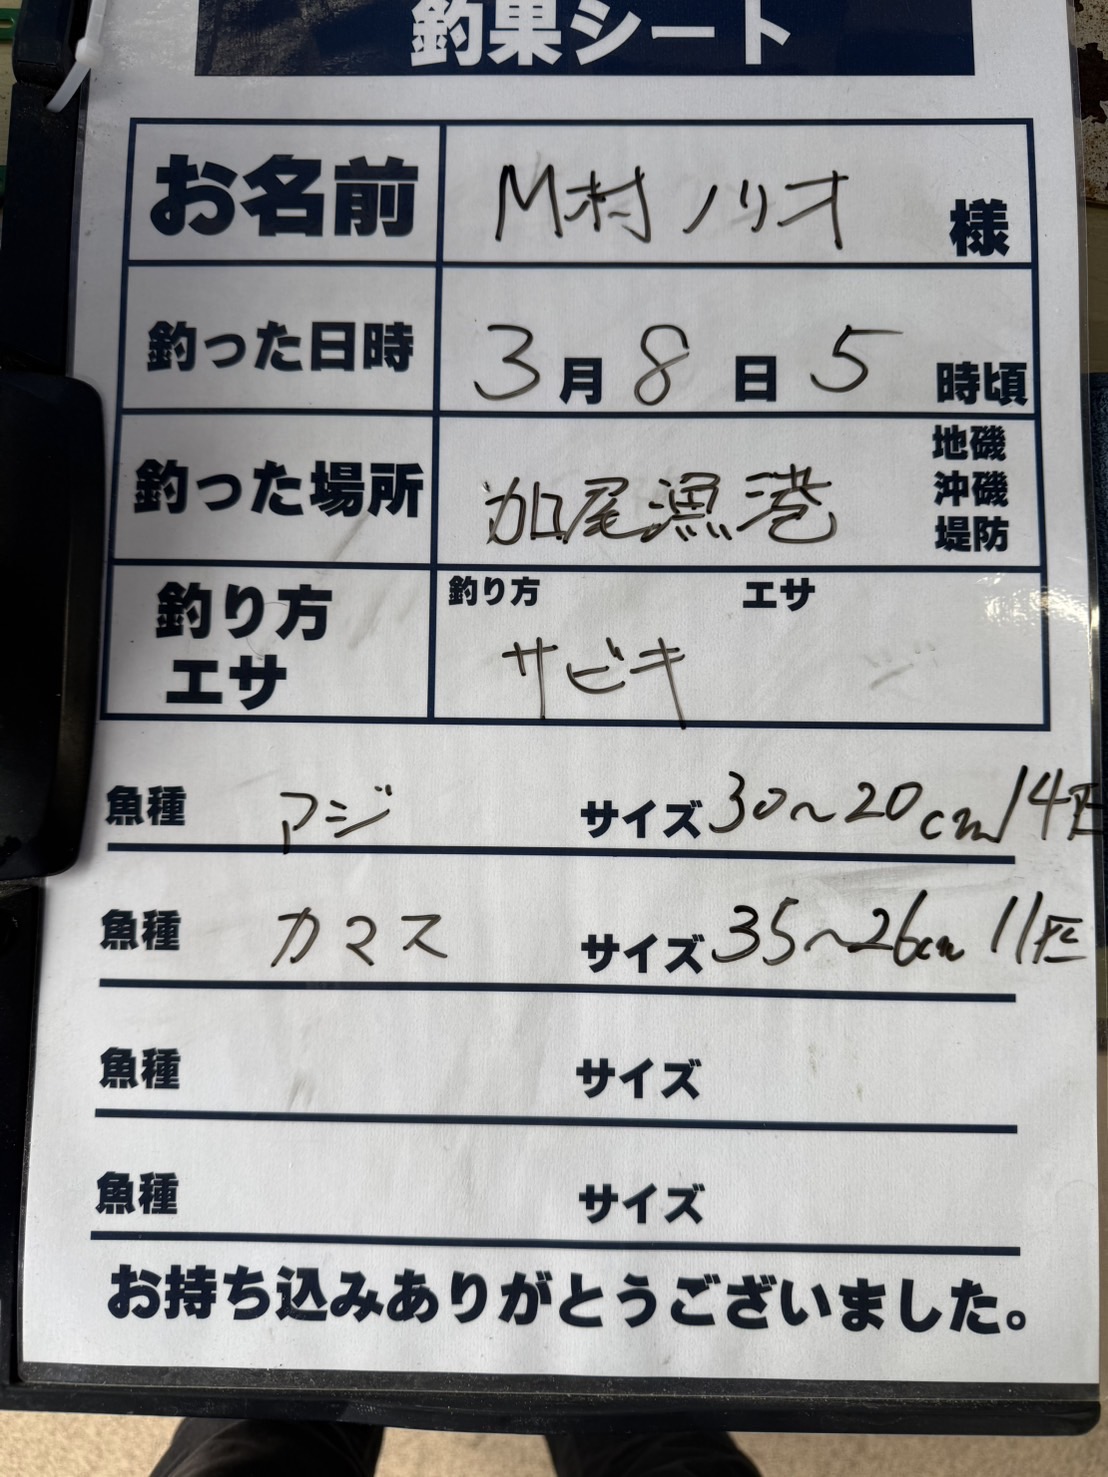 釣果シート
お名前 M村ノリオ 様
釣った日時 3月8日5時頃
釣った場所 加尾漁港 地磯
沖磯
堤防
釣り方 エサ 釣り方 サビキ エサ
魚種 アジ サイズ 30～20cm 14匹
魚種 カマス サイズ 35～26cm 11匹
魚種 サイズ
魚種 サイズ
お持ち込みありがとうございました。